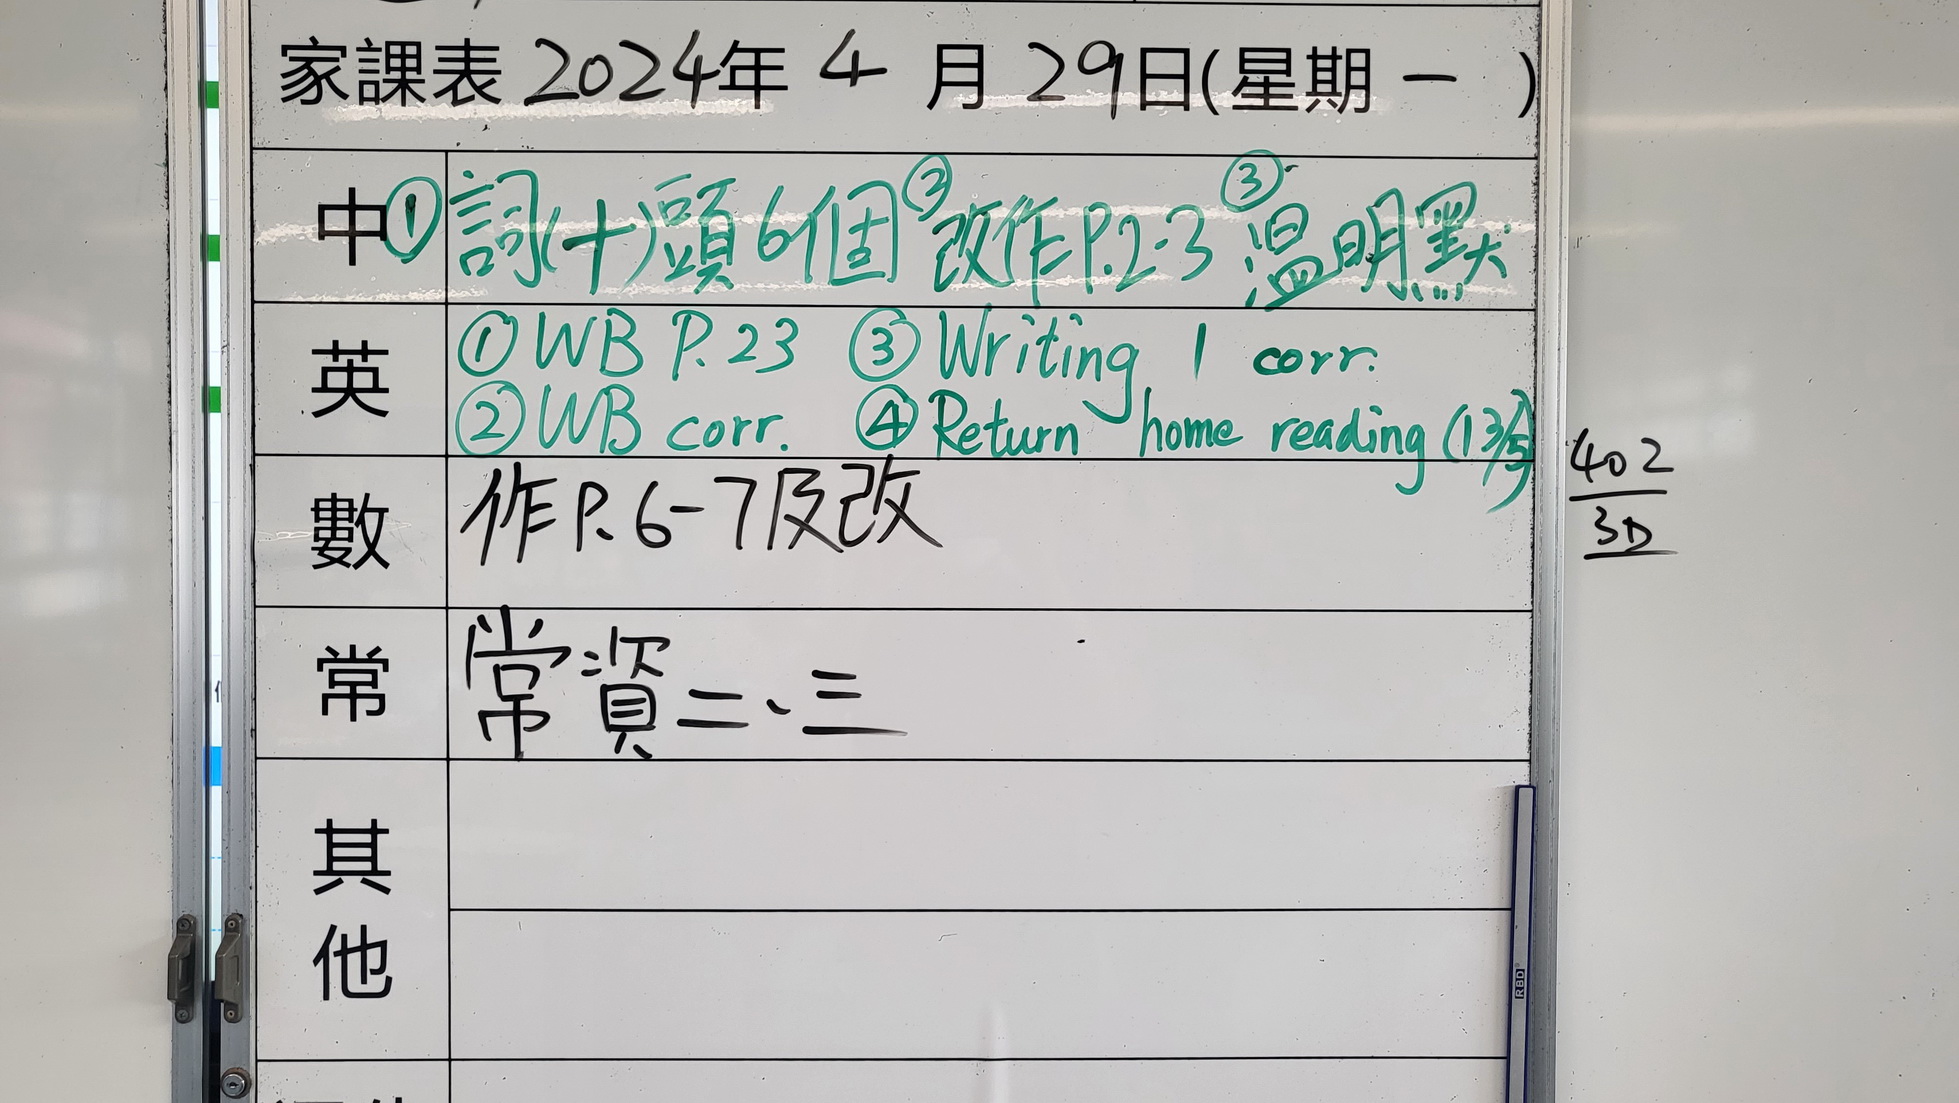 家課表 2024年 4 月 29日(星期 一 )
中 ①詞(十)頭6個 ②改作P.2-3 ③溫明默
英 ①WB P.23 ③Writing 1 corr.
②WB corr. ④Return home reading (13/5)
402
3D
數 作P.6-7及改
常 常資二、三
其他
RBD